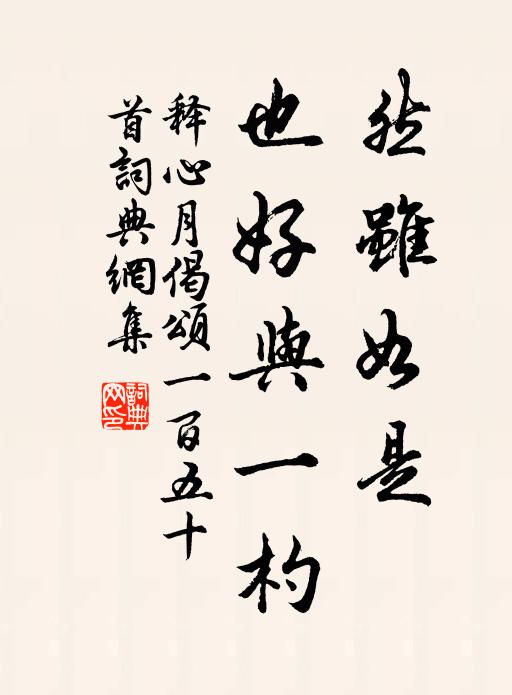 然雖如是
也好與一杓
释心月偈頌一百五十
首詞典網集
詞典
网印